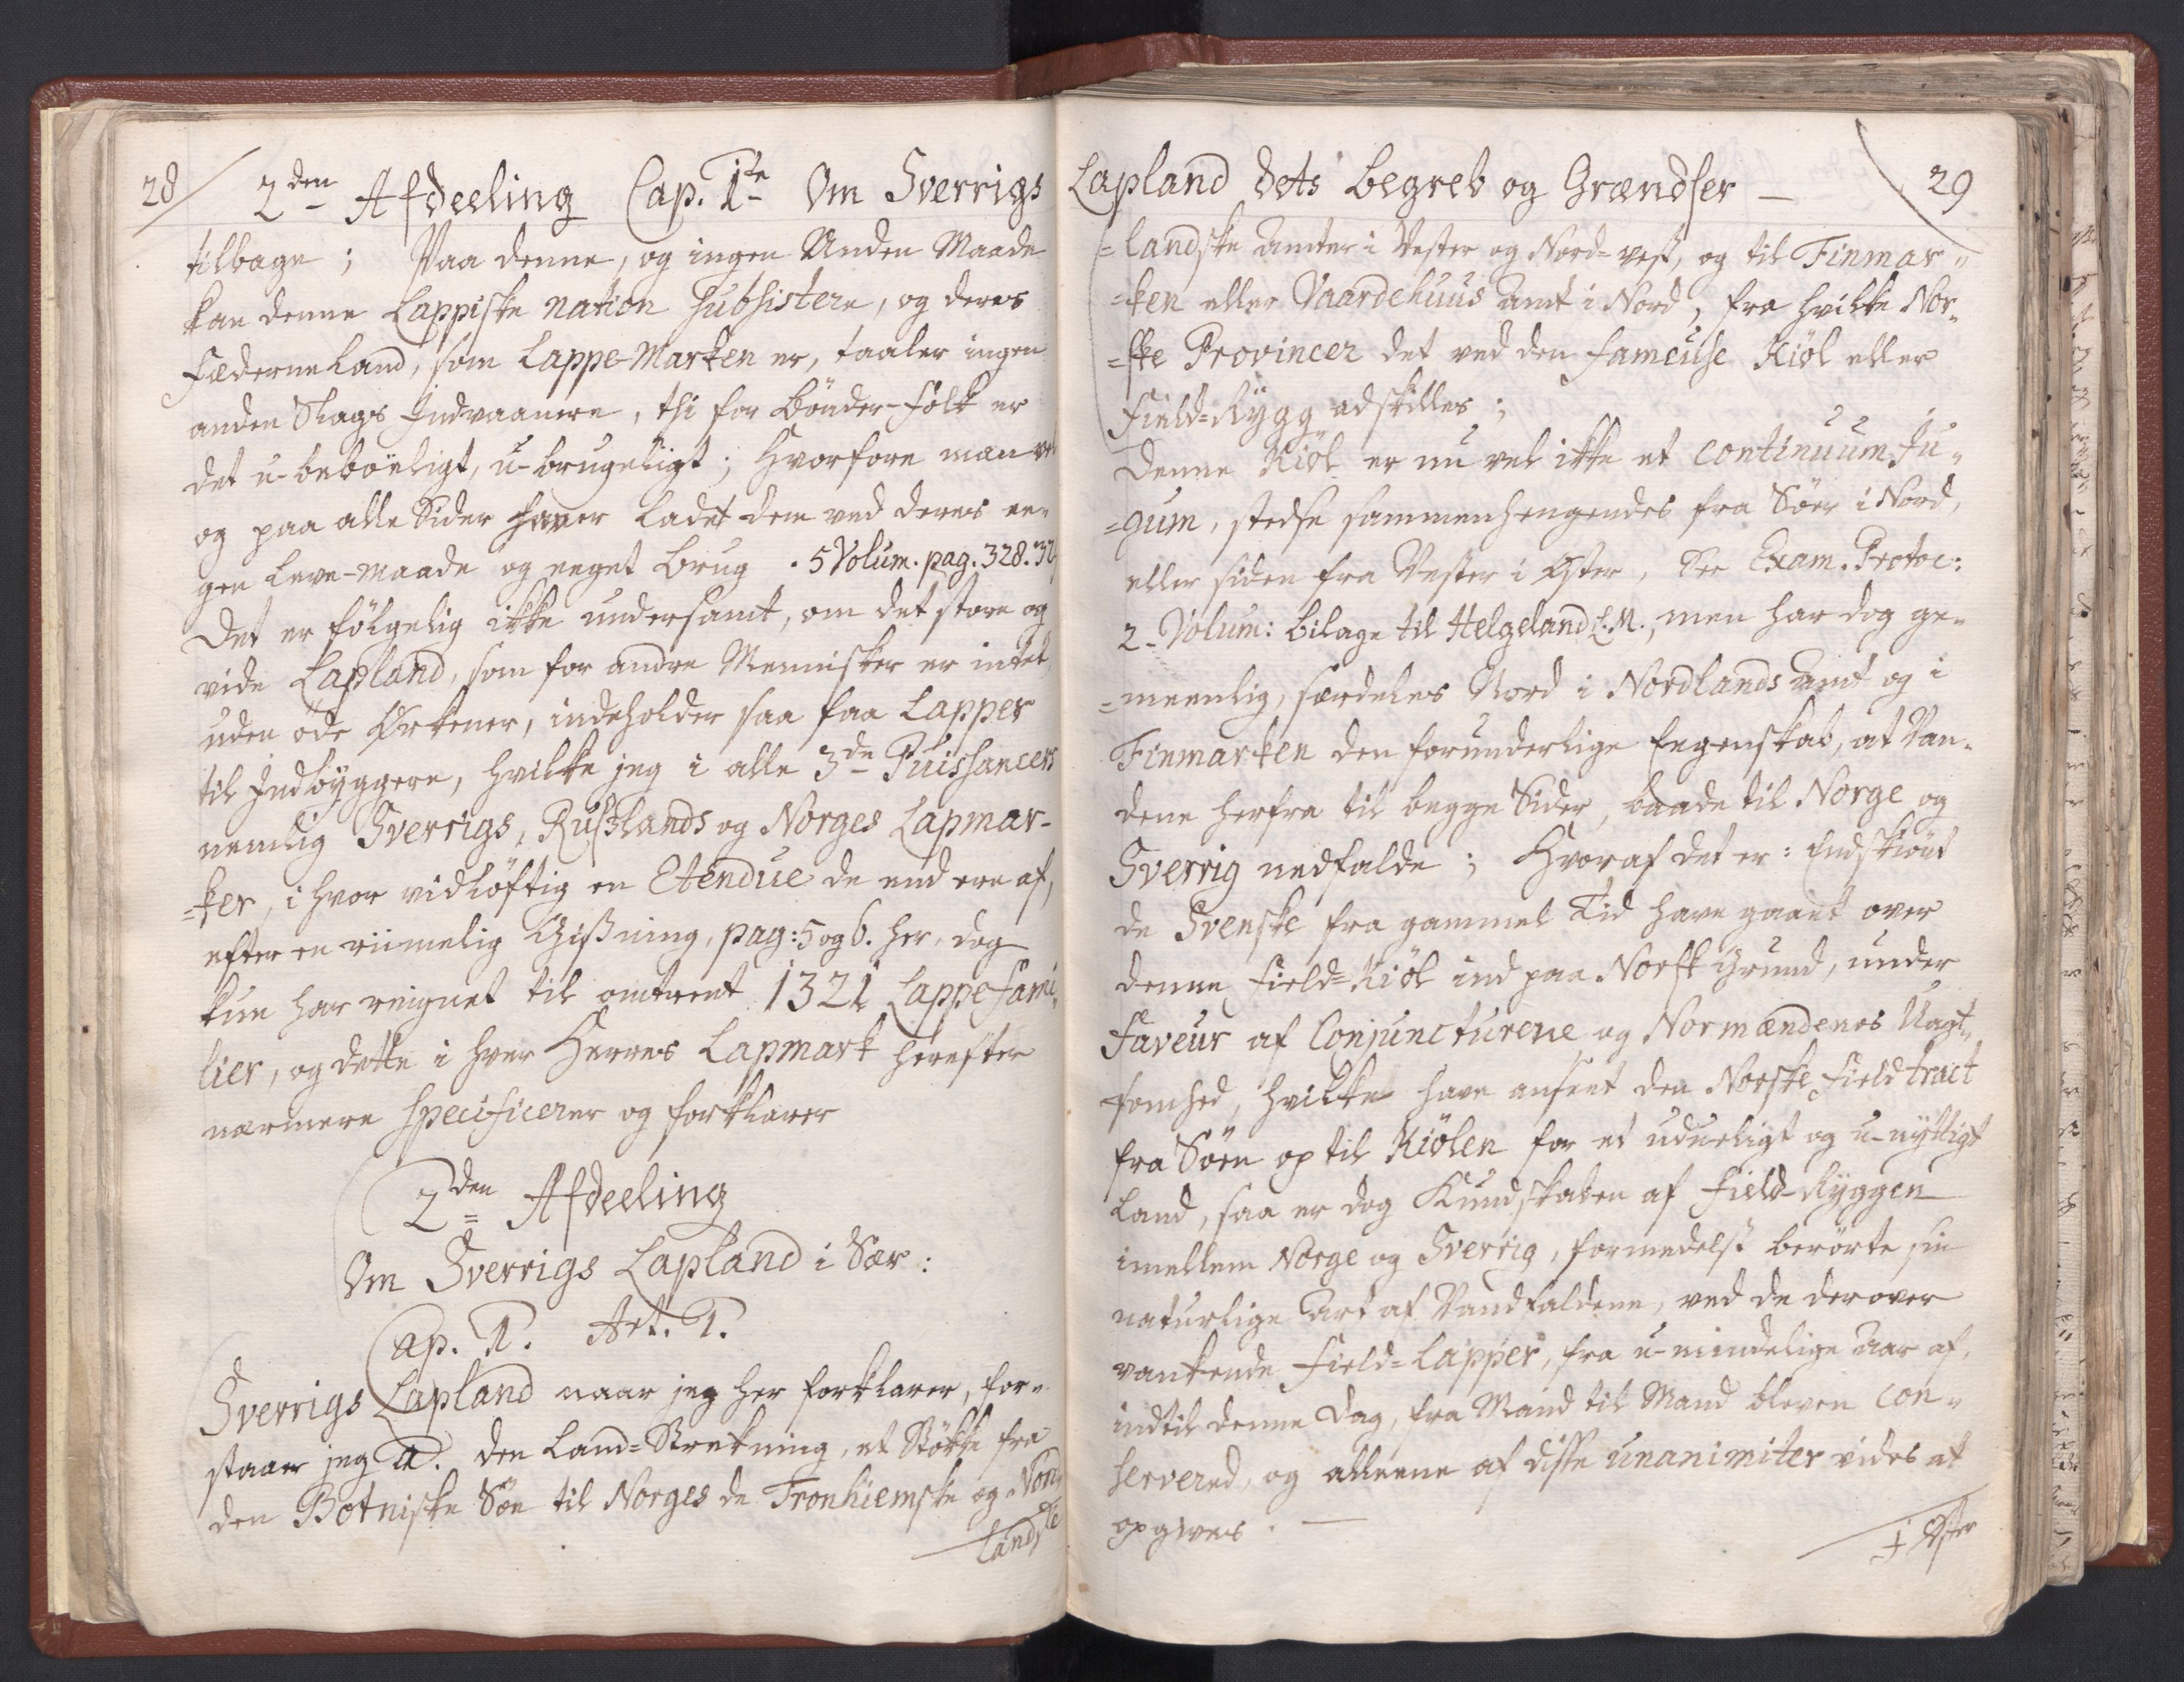 28
2den Afdeeling Cap. 1te Om Sverrigs
tilbage; Paa denne, og ingen Anden Maade
kan denne Lappiske nation subsistere, og deres
Fæderneland, som Lappe-Marken er, taaler ingen
anden Slags Indvaanere, thi for Bönder-folk er
det u-beboeligt, u-brugeligt; Hvorfore man
og paa alle Sider haver ladet dem ved deres ee-
gen leve-maade og eeget brug. 5 Volum. pag. 328. 32
Det er fölgelig ikke undersamt, om det store og
vide Lapland, som for andre Mennisker er intet
uden öde Ørkener, indeholder saa faa Lapper
til Indbyggere, hvilke jeg i alle 3de Puissancers
nemlig Sverrigs, Russlands og Norges Lapmar-
=ker, i hvor vidlöftig en Etendue de end ere af,
efter en riimelig Gissning, pag: 5 og 6. her, dog
kun har reignet til omtrent 1321 Lappe fami-
lier, og dette i hver Herres Lapmark herefter
nærmere specificerer og forklarer
2den Afdeeling
Om Sverrigs Lapland i Sær:
Cap. 1. Art. 1.
Sverrigs Lapland naar jeg her forklarer, for-
staaer jeg a. den Land-Strekning, et Stökke fra
den Botniske Söe til Norges de Tronhiemske og Nor
landske
29
Lapland dets begreb og Grændser —
=landske amter i Vester og Nord-vest, og til Finmar-
=ken eller Vaardehuus amt i Nord, fra hvilke Nor-
=ske Provincer det ved den fameuse Kiöl eller
Field-Rygg adskilles;
Denne Kiöl er nu vel ikke et continuum Ju-
=gum, stedse sammenhengendes fra Söer i Nord,
eller siden fra Vester i Øster, See Exam. Protoc:
2. Volum: bilage til Helgeland L.M., men har dog ge-
=meenlig, særdeles Nord i Nordlands amt og i
Finmarken den forunderlige Eegenskab, at Van-
dene herfra til begge Sider, baade til Norge og
Sverrig nedfalde; Hvoraf det er: Endskiönt
de Svenske fra gammel Tid have gaaet over
denne Field-Kiöl ind paa Norsk Grund, under
Faveur af Conjuncturene og Normændenes Uagt-
somhed, hvilke have anseet den Norske Field tract
fra Söen op til Kiölen for et udueligt og u-nyttigt
Land, saa er dog Kundskaben af Field-Ryggen
imellem Norge og Sverrig, formedelst berörte sin
naturlige Art af Vandfaldene, ved de derover
vankende Field-Lapper, fra u-mindelige Aar af,
indtil denne Dag, fra Mand til Mand bleven con-
servered, og alleene af disse unanimiter vides at
opgives. —
I Øster